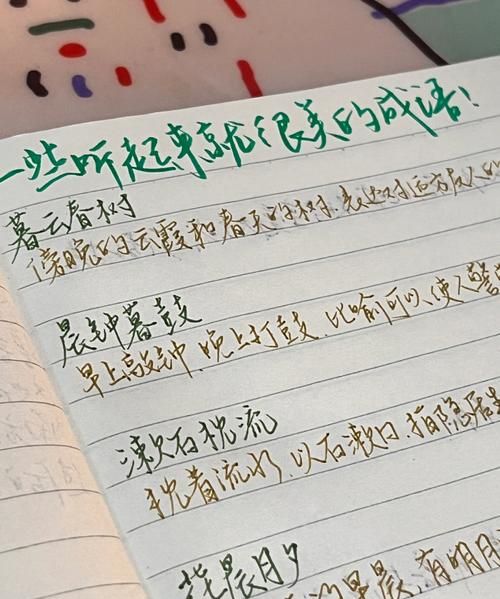 一些听起来就很美的成语！
暮云春树
傍晚的云霞和春天的树.表达对远方友人的
晨钟暮鼓
早上敲钟.晚上打鼓.比喻可以使人警
漱石枕流
枕着流水.以石漱口.指隐居
花晨月夕
的早晨,有明月